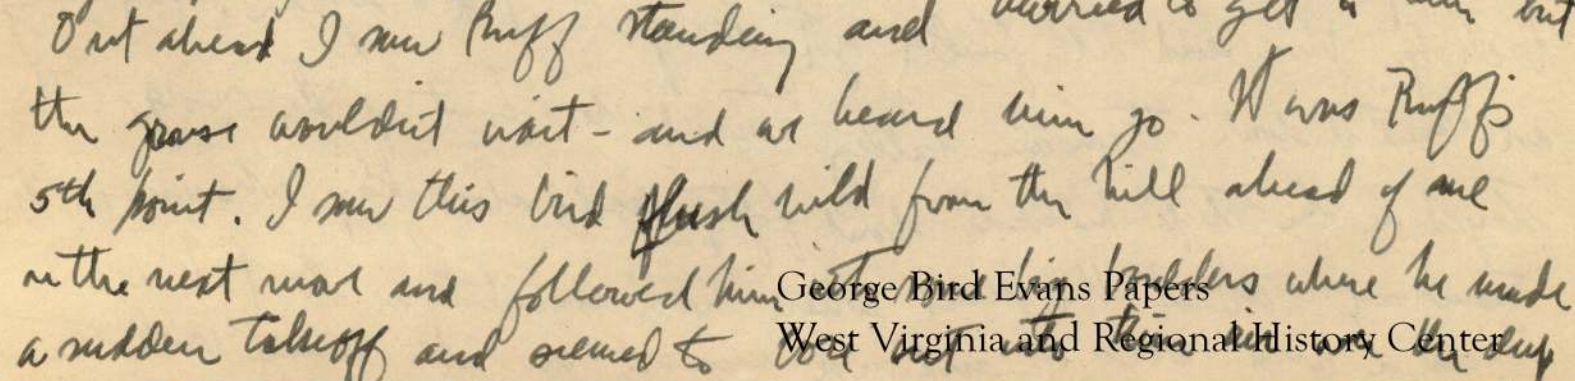 Out ahead I saw Ruff standing and hurried to get a but
the grouse wouldn't wait - and we heard him go. It was Ruff's
5th point. I saw this bird flush wild from the hill ahead of me
in the next and followed him big boulders where he made
a sudden takeoff and seemed to out the deep
George Bird Evans Papers
West Virginia and Regional History Center